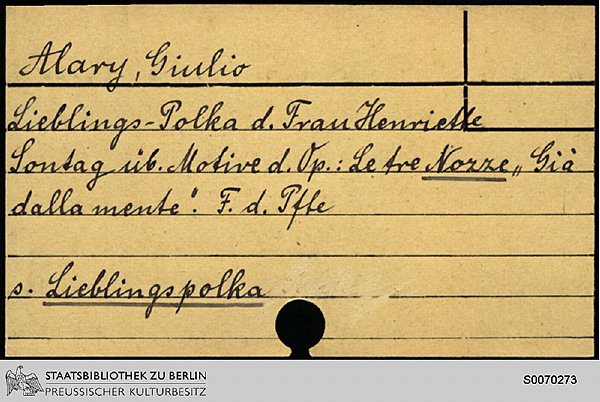 Alary, Giulio
Lieblings-Polka d. Frau Henriette
Sontag üb. Motive d. Op.: Le tre Nozze „Già
dalla mente". F. d. Pfte
s. Lieblingspolka
STAATSBIBLIOTHEK ZU BERLIN
PREUSSISCHER KULTURBESITZ
S0070273